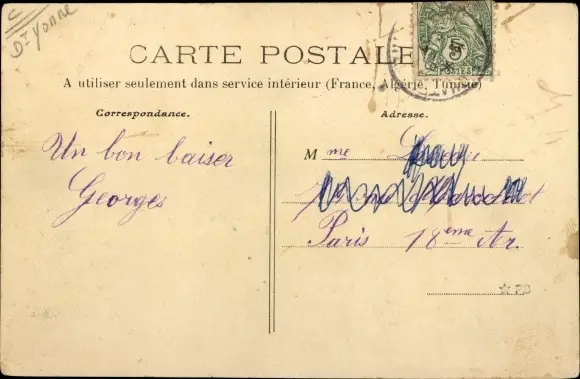 Dt Yonne
CARTE POSTALE
5
POSTES
A utiliser seulement dans service intérieur (France, Algérie, Tunisie)
Correspondance.
Adresse.
Un bon baiser
Georges
M me
Paris 18eme Ar.
PD